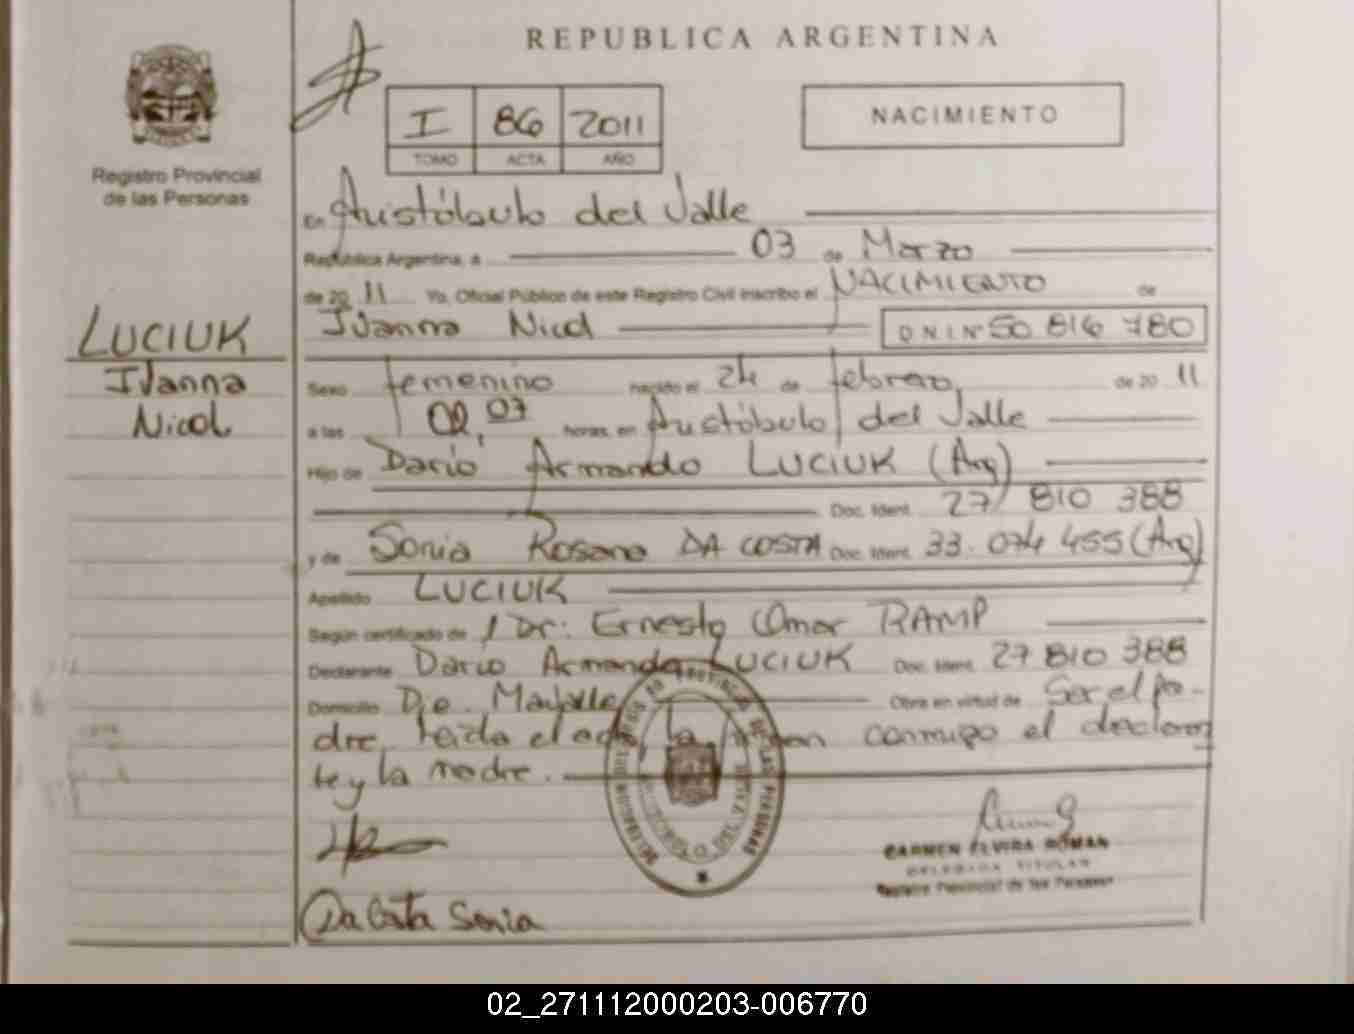 REPUBLICA ARGENTINA
Registro Provincial
de las Personas
I 86 2011
TOMO ACTA AÑO
NACIMIENTO
En Aristóbulo del Valle
República Argentina, a 03 de Marzo
de 20 11 Yo, Oficial Público de este Registro Civil inscribo el NACIMIENTO de
Ivanna Nicol D N I Nº 50 816 780
LUCIUK
Ivanna
Nicol
Sexo femenino nacido el 24 de febrero de 20 11
a las 07 horas, en Aristóbulo del Valle
Hijo de Dario Armando LUCIUK (Arg)
Doc. Ident. 27 810 388
y de Sonia Rosana DA COSTA Doc. Ident. 33.074 455 (Arg)
Apellido LUCIUK
Según certificado de Dr. Ernesto Omar RAMP
Declarante Dario Armando LUCIUK Doc. Ident. 27 810 388
Domicilio Obra en virtud de Ser el pa-
dre, leida el acta la conmigo el declaran
te y la madre.
PROVINCIAL DE LAS PERSONAS
CARMEN ELVIRA ROMAN
DELEGADA TITULAR
Registro Provincial de las Personas
Da Costa Sonia
02_271112000203-006770